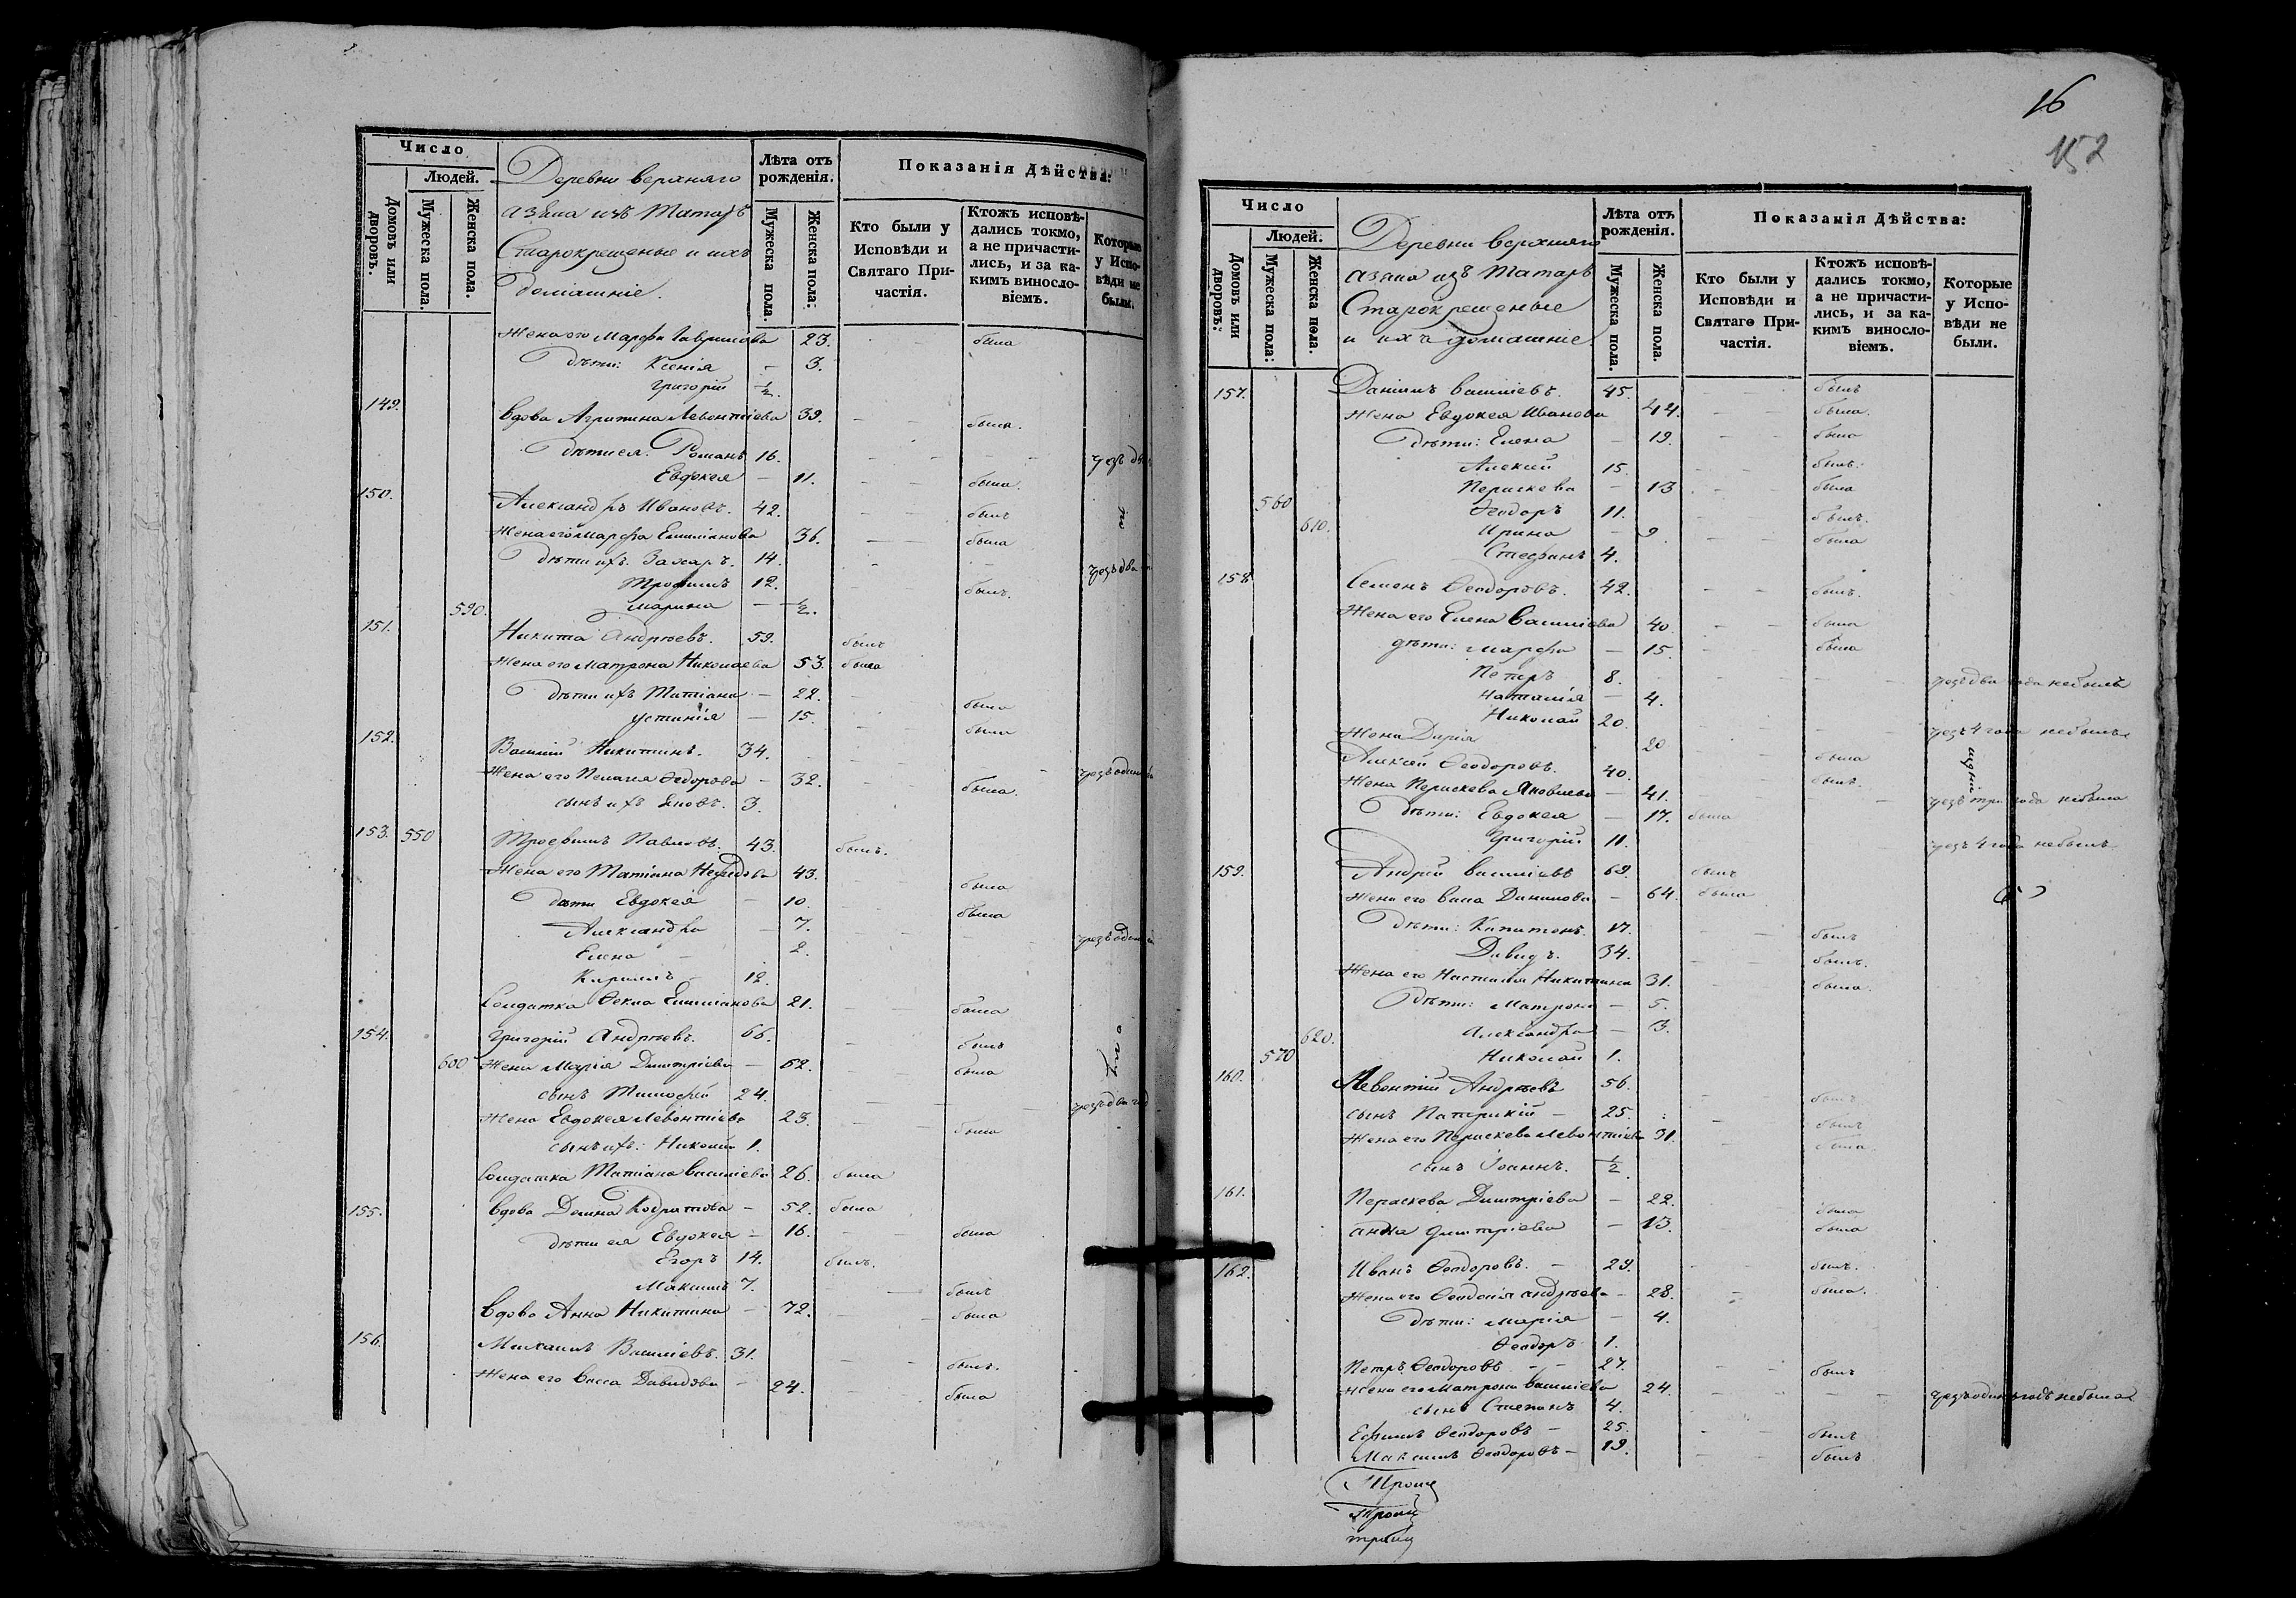 Число
Людей.
Домовъ или дворовъ.
Мужеска пола.
Женска пола.
Деревни верхняго
азяка изъ Татаръ
Старокрещеные и ихъ
домашніе.
Лѣта отъ рожденія.
Мужеска пола.
Женска пола:
Показанія Дѣйства:
Кто были у Исповѣди и Святаго Причастія.
Ктожъ исповѣдались токмо, а не причастились, и за какимъ винословіемъ.
Которые у Исповѣди не были.
Жена его Марфа Гаврилова 23. была
дѣти: Ксенія - 3.
Григорій ½.
149. Вдова Агрипина Левонтіева 39. была.
дѣти ея. Романъ 16.
Евдокея - 11. была.
150. Александръ Ивановъ. 42. былъ
Жена его Марфа Емиліанова 36. была
дѣти ихъ. Захаръ. 14. чрезъ два
Трофимъ 12. былъ.
590. Марина - ½.
151. Никита Андреевъ. 59. былъ
Жена его Матрона Николаева 53. была
дѣти ихъ Татіана - 22. была
Устинія - 15. была
152. Василій Никитинъ. 34. чрезъ одинъ
Жена его Пелагія Ѳедорова - 32. была.
сынъ ихъ Яковъ. 3.
153. 550 Трофимъ Павловъ: 43. былъ.
Жена его Татіана 43. была
дѣти Евдокея - 10. была
Александра - 7. чрезъ одинъ
Елена - 2.
Кирилъ - 12.
Солдатка Ѳекла Емиліанова 21. была
154. Григорій Андреевъ. 66. былъ
600 Жена Марія Дмитріева - 62. была
сынъ Тимофей 24. чрезъ два год
Жена Евдокея Левонтіева 23. была
сынъ ихъ: Николай 1.
Солдатка Татіана Василіева 26. была
155. Вдова Домна Кодратова - 52. была
дѣти ея Евдокея - 16. была
Егоръ 14. былъ.
Максимъ 7. былъ
Вдова Анна Никитина - 72. была
156. Михаилъ Василіевъ. 31. былъ.
Жена его Васса Давидова - 24. была
16
152
Число
Людей.
Домовъ или дворовъ:
Мужеска пола:
Женска пола.
Деревни верхняго
азяка изъ Татаръ
Старокрещеные
и ихъ домашніе
Лѣта отъ рожденія.
Мужеска пола.
Женска пола.
Показанія Дѣйства:
Кто были у Исповѣди и Святаго Причастія.
Ктожъ исповѣдались токмо, а не причастились, и за какимъ винословіемъ.
Которые у Исповѣди не были.
157. Даніилъ Василіевъ. 45. былъ
Жена Евдокея Иванова 44. была.
дѣти: Елена - 19. была
Алексій 15. былъ.
Пераскева - 13 была
560 Ѳеодоръ 11. былъ.
610. Ирина - 9. была
Стефанъ 4.
158. Семенъ Ѳеодоровъ. 42. былъ.
Жена его Елена Василіева 40. была
дѣти: Марфа - 15. была
Петръ 8. чрезъ два года небылъ
Наталія - 4.
Николай 20. чрезъ 4 года небылъ
Жена Дарія 20 была
Алексій Ѳеодоровъ. 40. былъ.
Жена Пераскева Яковлева - 41. чрезъ три года небыла
дѣти: Евдокея - 17. была
Григорій 11. чрезъ 4 года небылъ
159. Андрей Василіевъ 69. былъ
Жена его Васа Данилова - 64. была
дѣти: Капитонъ 17. былъ
Давидъ. 34. былъ.
Жена его Настасія Никитина 31. была.
дѣти: Матрона - 5.
620. Александра - 3.
570 Николай 1.
160. Левонтій Андреевъ 56. былъ
сынъ Патрикій - 25. былъ
Жена его Пераскева Левонтіева 31. была.
сынъ Іоаннъ. ½
161. Пераскева Дмитріева - 22. была
Анна Дмитріева - 13. была
162. Иванъ Ѳеодоровъ. - 29. былъ.
Жена его Ѳеодосія Андреева - 28. была.
дѣти: Марія - 4.
Ѳеодоръ 1.
Петръ Ѳеодоровъ - - 27. былъ
Жена его Матрона Василіева 24. чрезъ одинъ годъ небыла
сынъ Степанъ 4.
Ефимъ Ѳеодоровъ - 25. былъ
Максимъ Ѳеодоровъ - 19. былъ